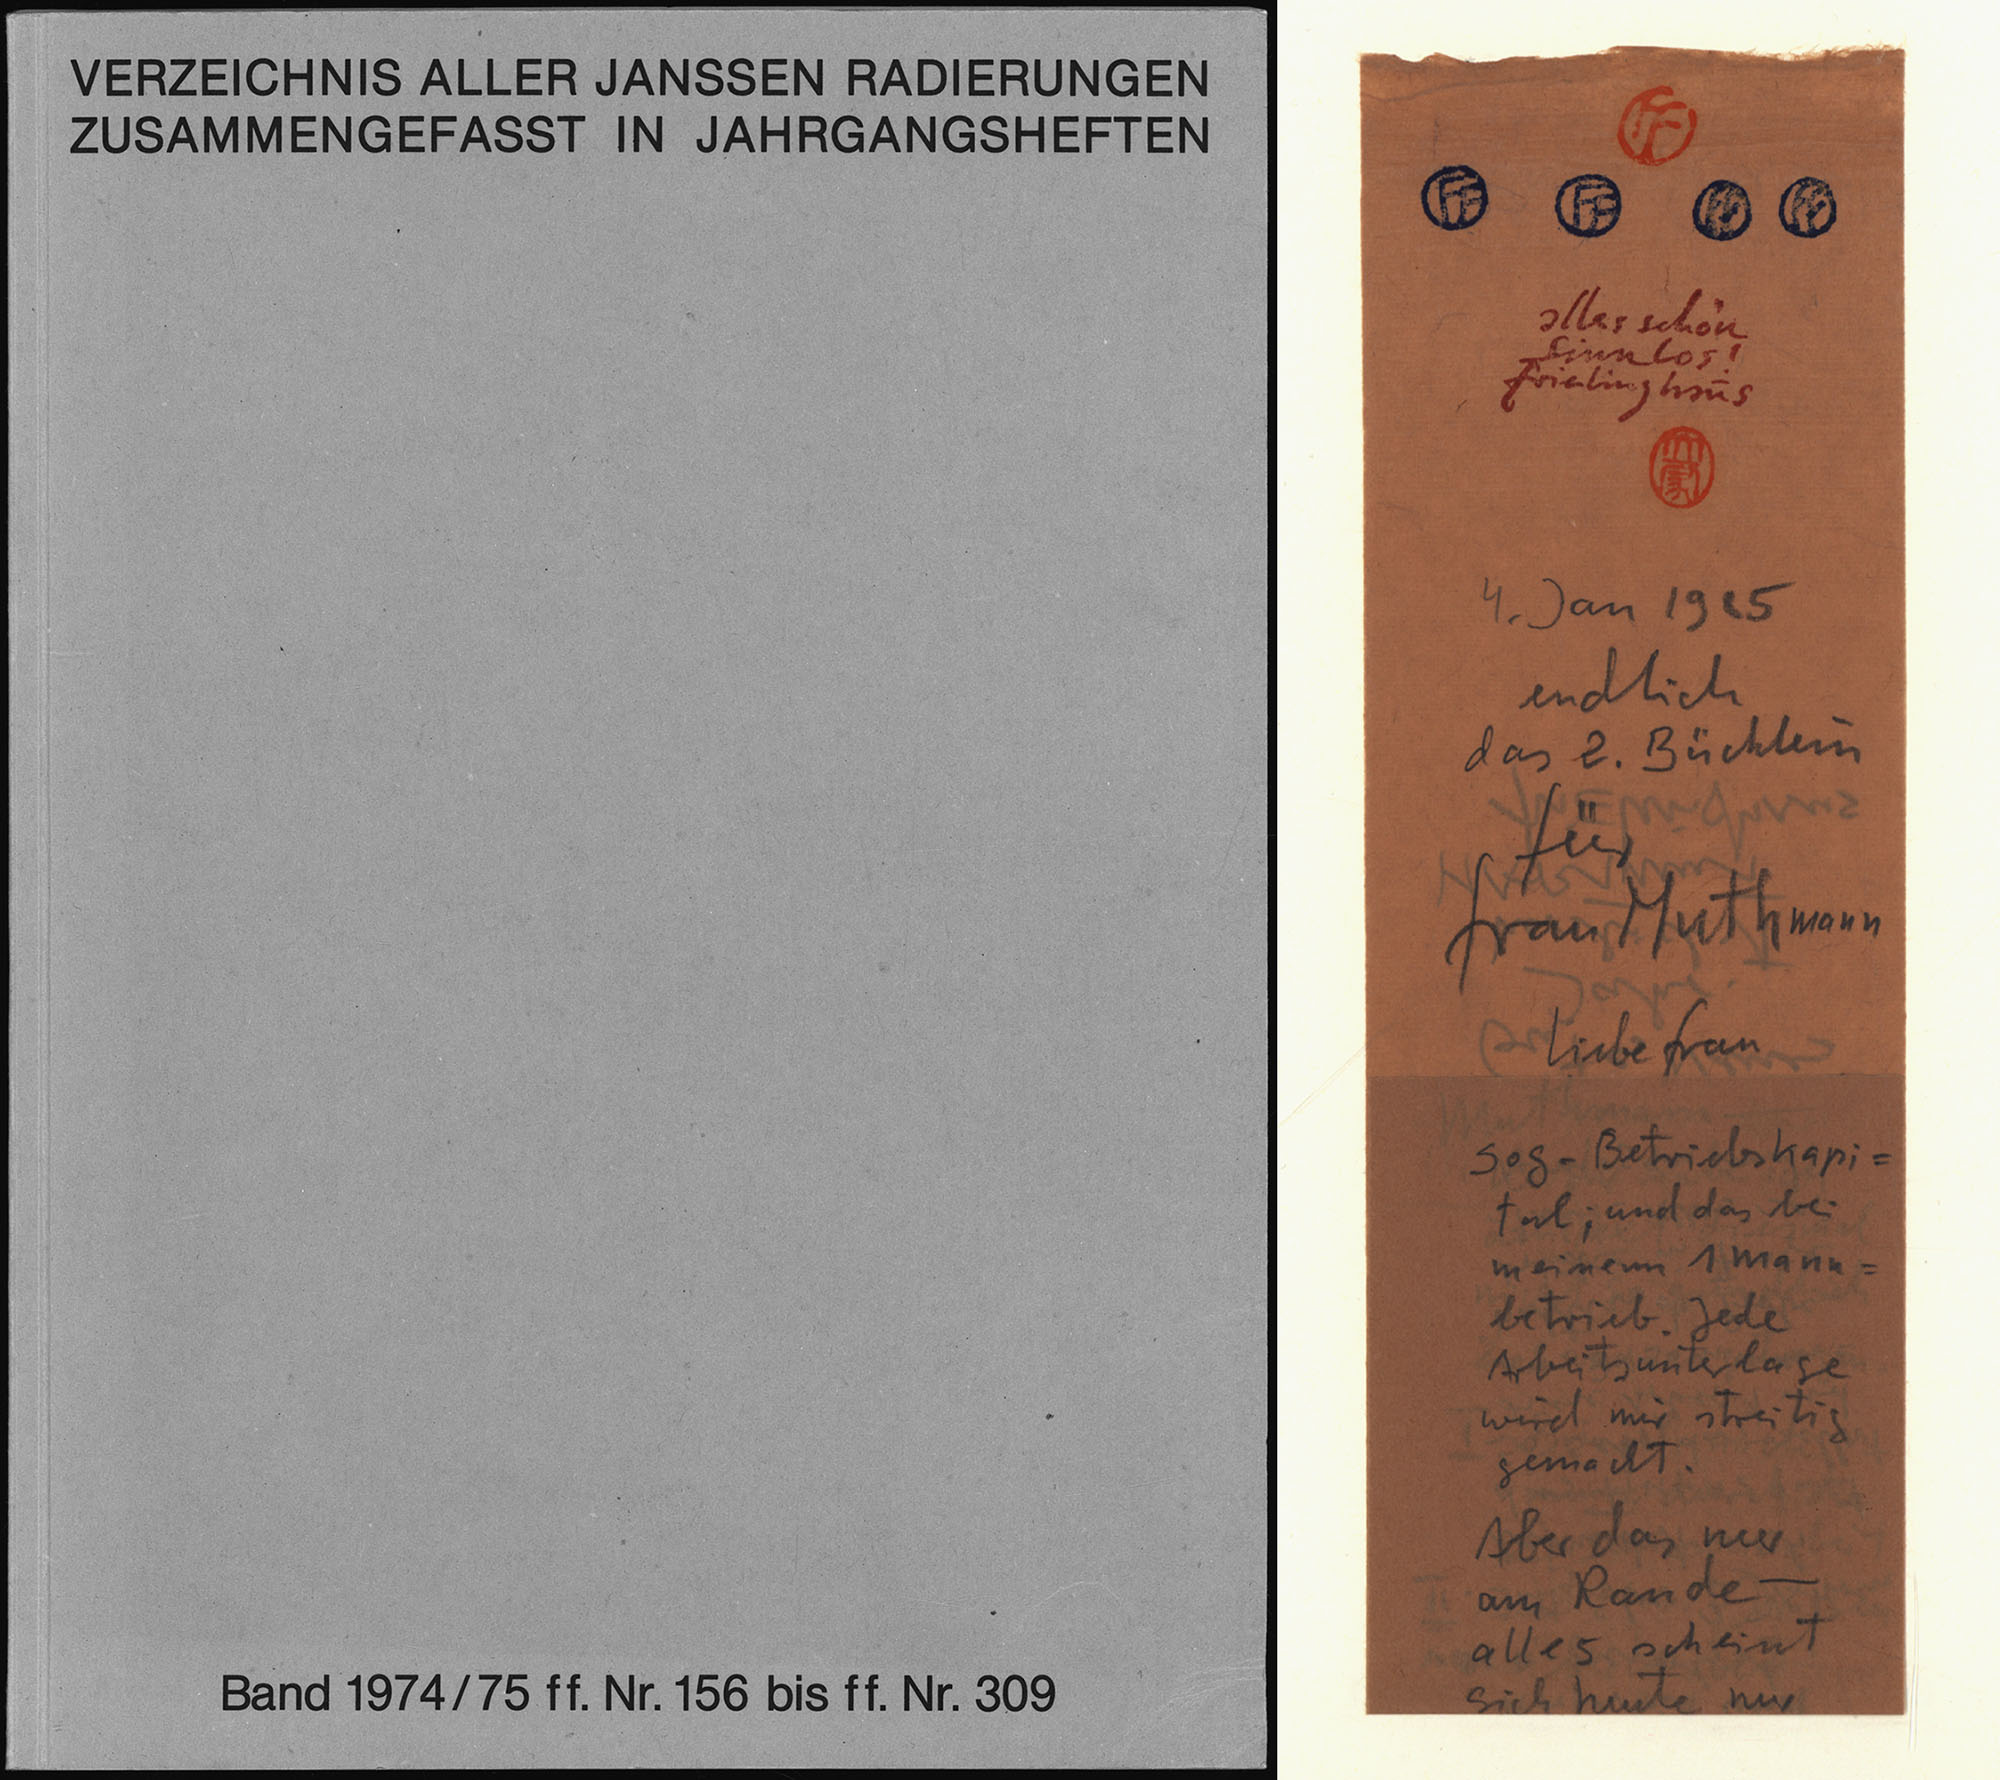 VERZEICHNIS ALLER JANSSEN RADIERUNGEN
ZUSAMMENGEFASST IN JAHRGANGSHEFTEN
Band 1974/75 ff. Nr. 156 bis ff. Nr. 309
FF
FF FF
alles schön
sinnlos!
Frielinghaus
4. Jan 1985
endlich
das 2. Büchlein
für
Frau Muthmann
liebe Frau
sog- Betriebskapi=
tal; und das bei
meinem 1 Mann=
betrieb. Jede
Arbeitsunterlage
wird mir streitig
gemacht.
Aber das nur
am Rande —
alles scheint
sich heute nur